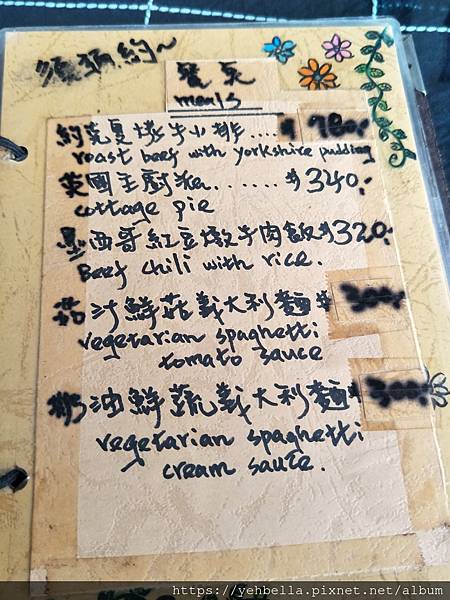 須預約~
餐点
meals
約克夏烤牛小排....$780.
roast beef with yorkshire pudding
英國主廚派.......$340.
cottage pie
墨西哥紅豆燉牛肉飯$320.
Beef chili with rice.
茄汁鮮菇義大利麵$300.
vegetarian spaghetti
tomato sauce
奶油鮮蔬義大利麵$300.
vegetarian spaghetti
cream sauce.
https://yehbella.pixnet.net/album